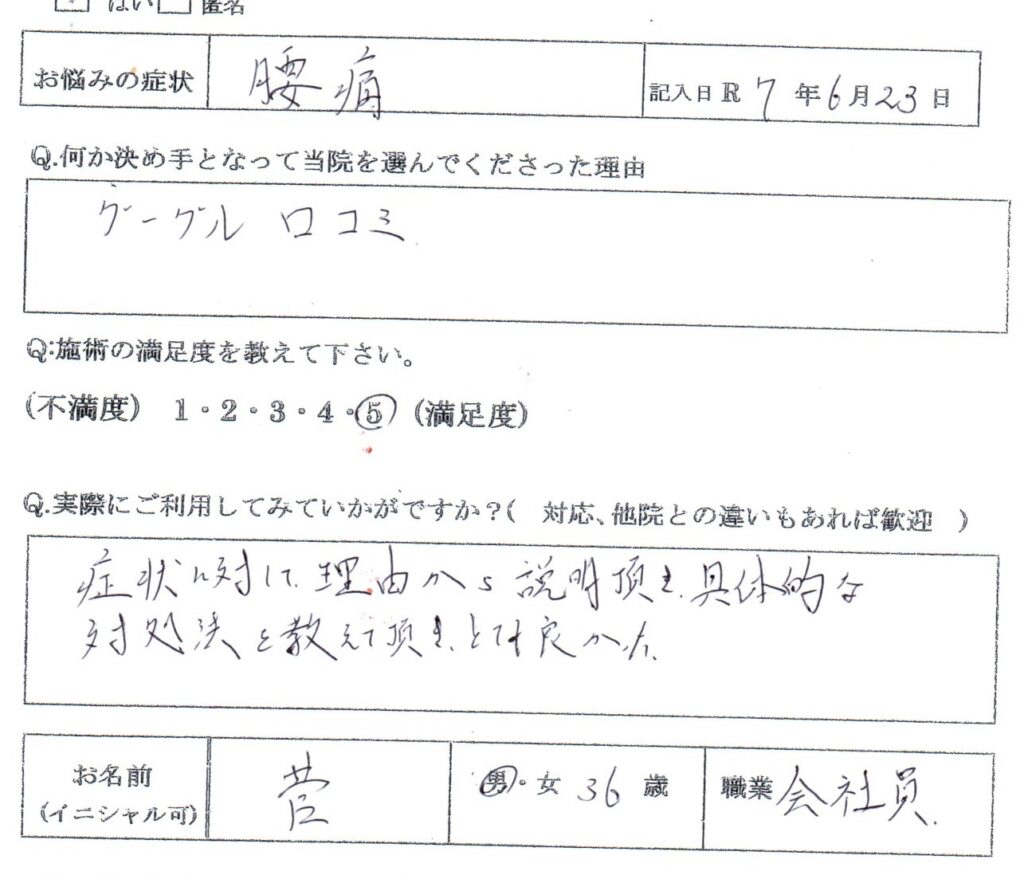 はい 匿名
お悩みの症状 腰痛 記入日 R 7 年 6 月 23 日
Q.何か決め手となって当院を選んでくださった理由
グーグル 口コミ
Q:施術の満足度を教えて下さい。
(不満度) 1・2・3・4・5 (満足度)
Q.実際にご利用してみていかがですか?( 対応、他院との違いもあれば歓迎 )
症状に対して、理由から説明頂き、具体的な
対処法を教えて頂き、とても良かった。
お名前 菅 男・女 36 歳 職業 会社員.
(イニシャル可)